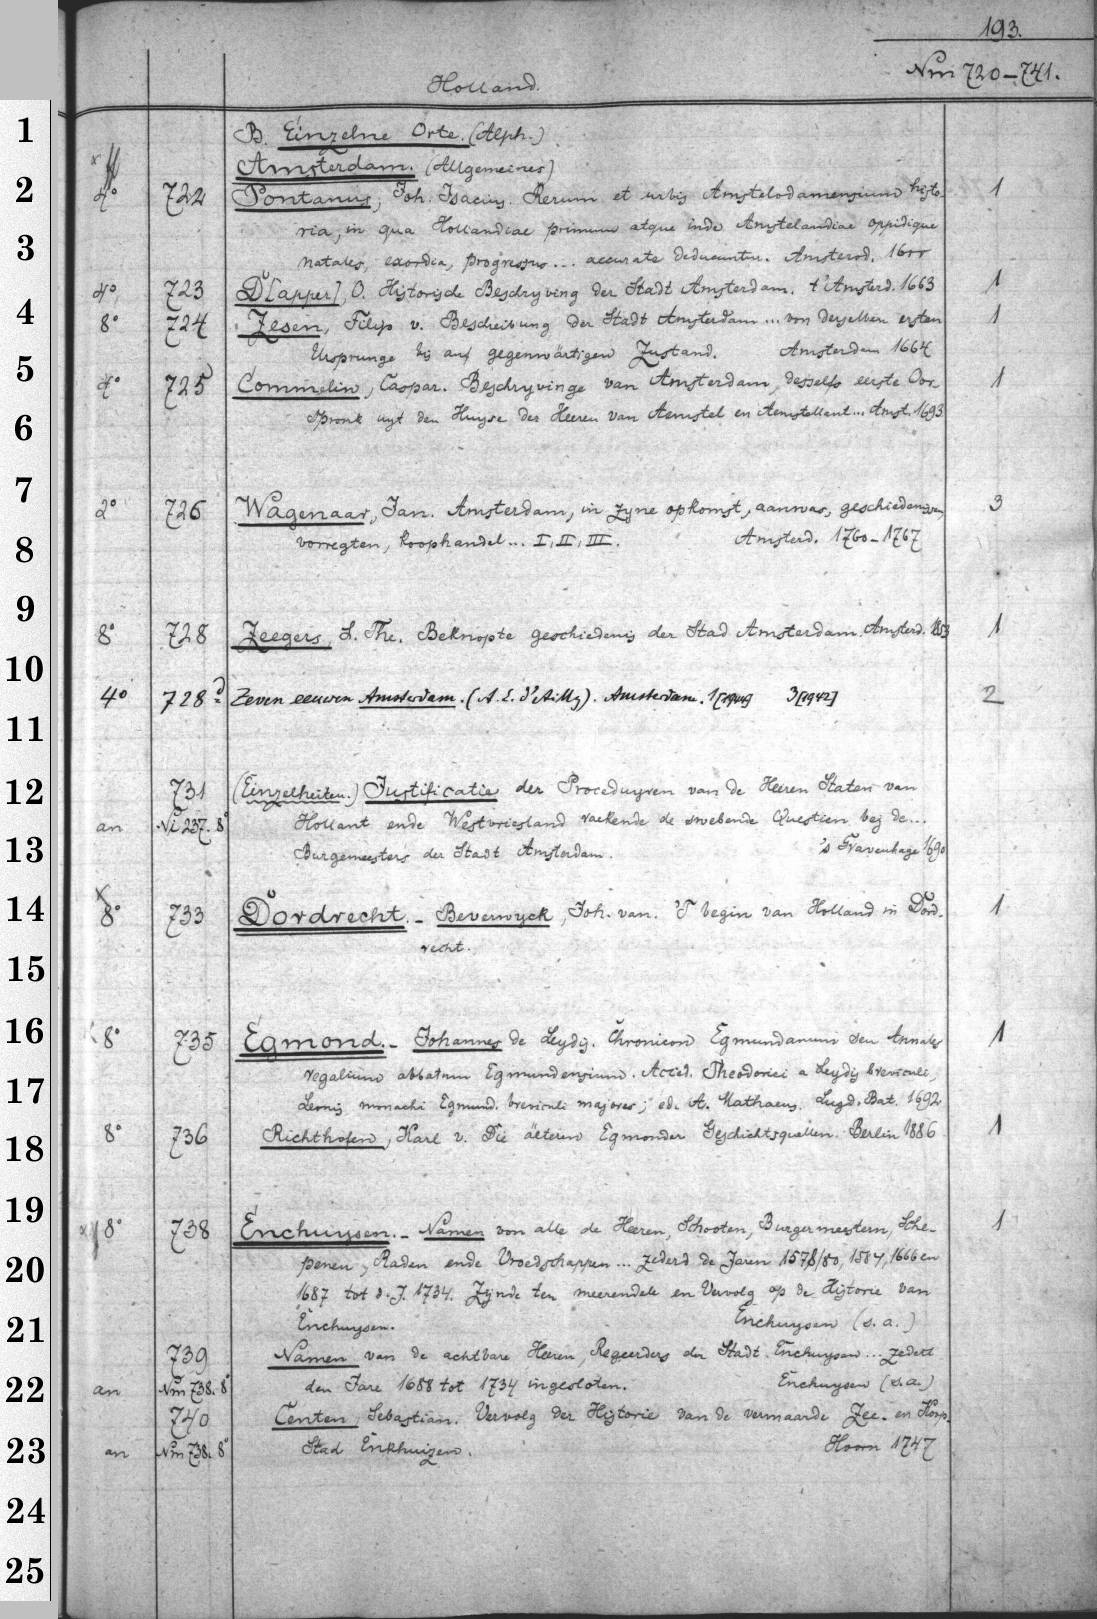 193.
Nm 720–741.
Holland.
1
B. Einzelne Orte. (Alph.)
Amsterdam. (Allgemeines)
2
4° 722 Pontanus, Joh. Isacius. Rerum et urbis Amstelodamensium histo- 1
ria, in qua Hollandiae primum atque inde Amstelandiae oppidique
3
natales, exordia, progressus... accurate deducuntur. Amsterod. 16
4°, 723 D[apper], O. Historische Beschryving der Stadt Amsterdam. t'Amsterd. 1663 1
4
8° 724 Zesen, Filip v. Beschreibung der Stadt Amsterdam... von derselben ersten 1
Ursprunge bis auf gegenwärtigen Zustand. Amsterdam 1664
5
4° 725 Commelin, Caspar. Beschryvinge van Amsterdam, desselfs eerste Oor- 1
spronk uyt den Huyse der Heeren van Aemstel en Aemstellant... Amst. 1693
6
7
2° 726 Wagenaar, Jan. Amsterdam, in zyne opkomst, aanwas, geschiedenissen, 3
vorregten, koophandel... I, II, III. Amsterd. 1760–1767
8
9
8° 728 Zeegers, L. The. Beknopte geschiedenis der Stad Amsterdam. Amsterd. 1853 1
10
4° 728d Zeven eeuwen Amsterdam. (A. E. d'Ailly). Amsterdam. 1[1944] 3[1942] 2
11
12
731 (Einzelheiten.) Justificatie der Proceduyren van de Heeren Staten van
an Ni 237. 8° Hollant ende Westvriesland raekende de swebende Questien bej de...
13
Burgemeesters der Stadt Amsterdam. 's Gravenhage 1690
14
8° 733 Dordrecht. – Beverwyck, Joh. van. 'T begin van Holland in Dord- 1
recht.
15
16
8° 735 Egmond. – Johannes de Leydis. Chronicon Egmundanum seu Annales 1
regalium abbatum Egmundensium. Acced. Theodorici a Leydis breviculi,
17
Leonis monachi Egmund. breviculi majores; ed. A. Mathaeus. Lugd. Bat. 1692
8° 736 Richthofen, Karl v. Die älteren Egmonder Geschichtsquellen. Berlin 1886 1
18
19
8° 738 Enchuysen. – Namen von alle de Heeren, Schooten, Burgermeestern, Sche- 1
penen, Raden ende Vroedschappen... zederd de Jaren 1578/80, 1584, 1666 en
20
1687 tot d. J. 1734. Zijnde ten meerendele en Vervolg op de Historie van
Enchuysen. Enchuysen (s. a.)
21
739 Namen van de achtbare Heeren, Regeerders der Stadt Enchuysen... zedert
22
an Nm 738. 8° den Jare 1688 tot 1734 ingesloten. Enchuysen (s. a.)
740 Centen, Sebastian. Vervolg der Historie van de vermaarde Zee- en Koop-
23
an Nm 738. 8° Stad Enkhuizen. Hoorn 1747
24
25